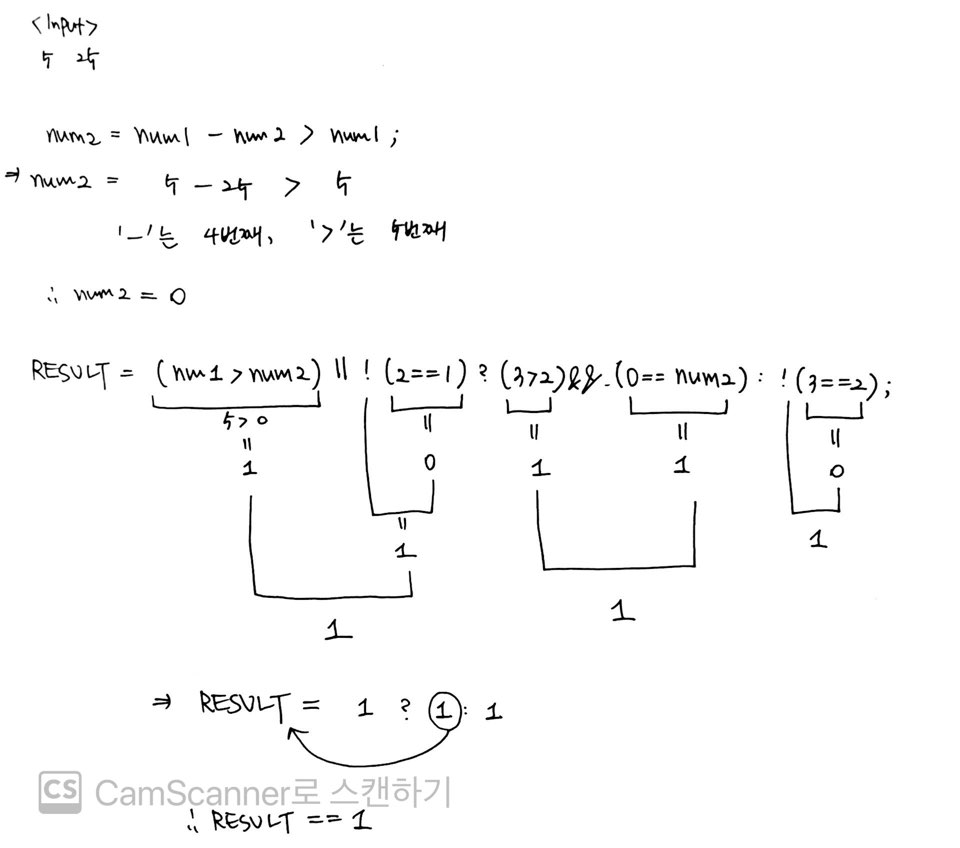 <Input>
5 25
num2 = num1 - num2 > num1;
⇒ num2 = 5 - 25 > 5
'-'는 4번째, '>'는 5번째
∴ num2 = 0
RESULT = (num1>num2) || ! (2==1) ? (3>2)&&.(0== num2) : !(3==2);
5>0 || || || ||
|| 0 1 1 0
1
|| 1
1
1 1
⇒ RESULT = 1 ? 1 : 1
CS CamScanner로 스캔하기
∴ RESULT == 1